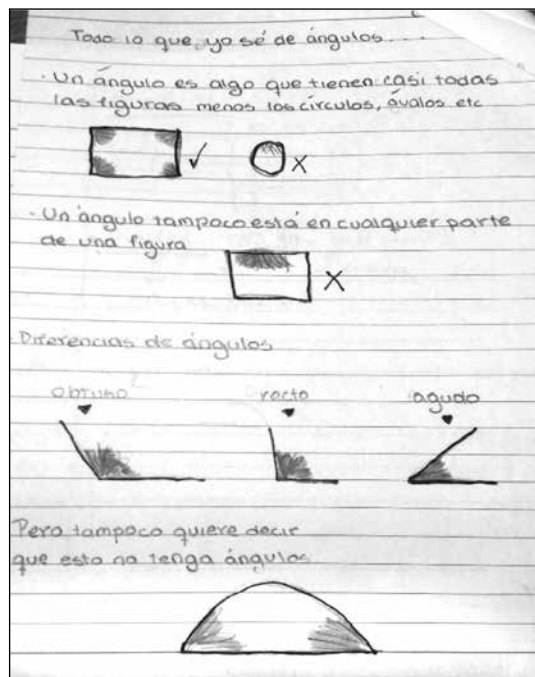 Todo lo que, yo sé de ángulos....
· Un ángulo es algo que tienen casi todas
las figuras menos los círculos, óvalos etc
✓ X
· Un ángulo tampoco está en cualquier parte
de una figura
X
Diferencias de ángulos
obtuso recto agudo
Pero tampoco quiere decir
que esto no tenga ángulos